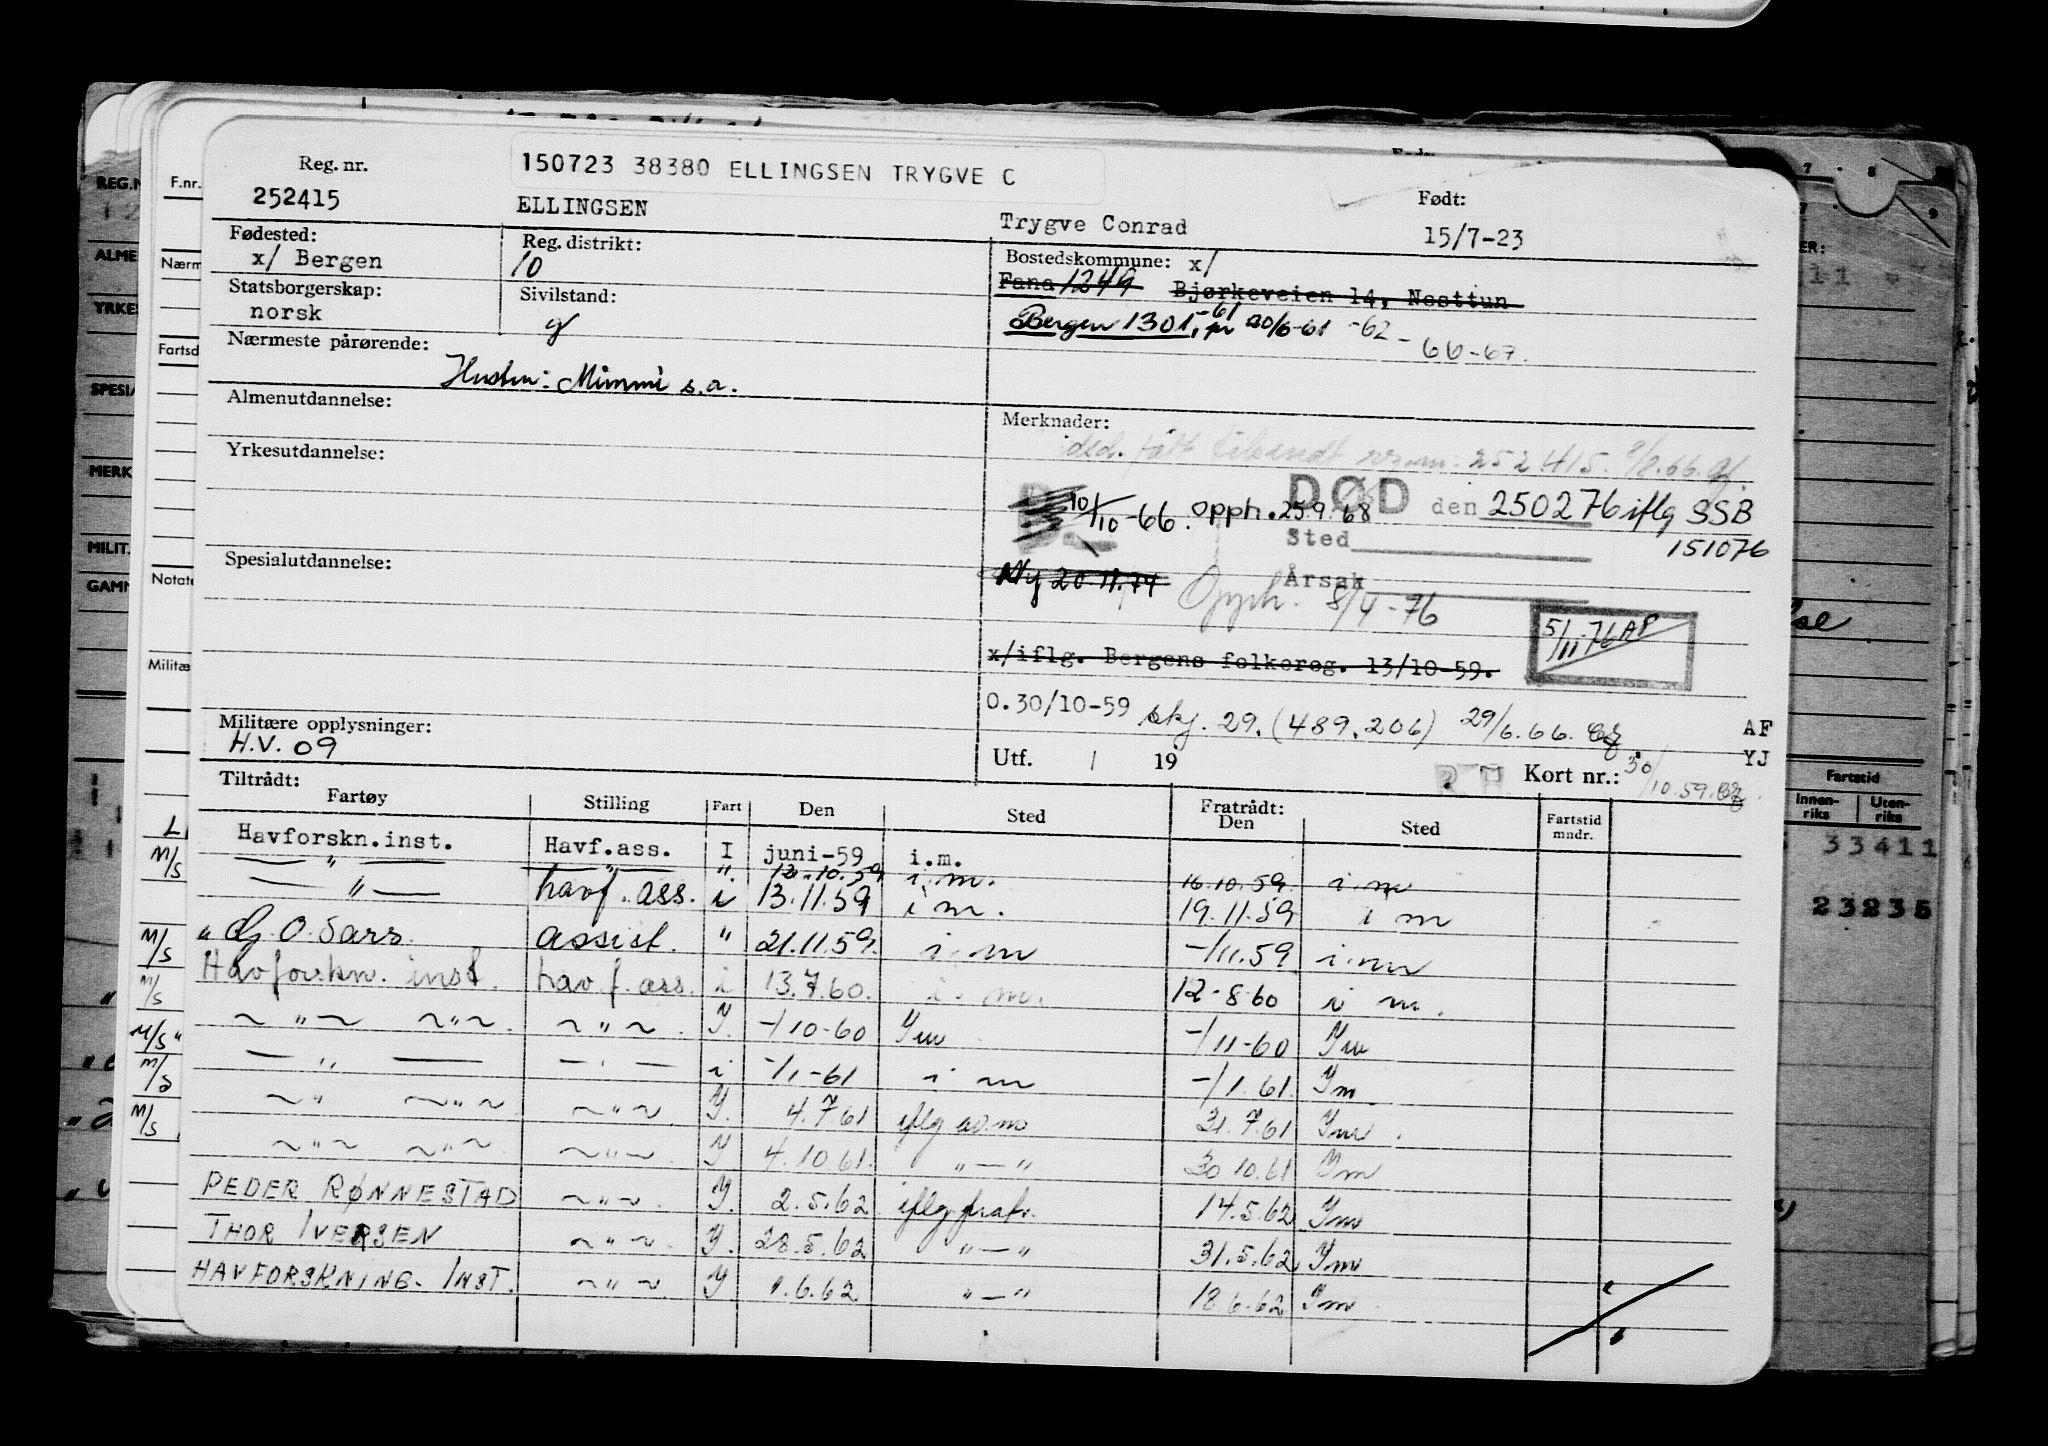 150723 38380 ELLINGSEN TRYGVE C
Reg. nr. Født:
252415 ELLINGSEN Trygve Conrad 15/7-23
Fødested: Reg. distrikt: Bostedskommune: x/
x/ Bergen 10 Fana 1249 Bjørkeveien 14, Nesttun
Statsborgerskap: Sivilstand: Bergen 1301, pr 20/6-61 -61 -62 - 66-67.
norsk g
Nærmeste pårørende:
Hustru: Mimmi s.a.
Almenutdannelse: Merknader:
252415. 9/8.66.
Yrkesutdannelse:
DØD den 250276 iflg SSB
10/10-66. Opph. 25.9.68
Sted 151076
Spesialutdannelse: Årsak
Ny 20.11.74 Opph. 8/4-76
5/11-76 AP
x/iflg. Bergens folkereg. 13/10-59.
0.30/10-59 skj. 29. (489.206) 29/6.66. AF
Militære opplysninger: YJ
H.V. 09 Utf. / 19 Kort nr.: 30/10.59.
Tiltrådt: Fratrådt:
Fartøy Stilling Fart Den Sted Den Sted Fartstid mndr.
Havforskn.inst. Havf.ass. I juni-59 i.m.
— " — " ". 12.10.59 i.m. 16.10.59. i m
— " — havf. ass. i 13.11.59 i m. 19.11.59 i m
" G. O. Sars. assist. " 21.11.59. i m -/11.59 i m
Havforskn. inst. havf. ass. i 13.7.60. i. m. 12-8-60 i m.
~ " ~ ~ " ~. ~ " ~. Y. -/10-60 Ym -/11-60 Ym
— " — — " — i -/1-61 i m -/1.61. Ym
~ " ~ " ~ ~ " ~ Y. 4.7.61 iflg av.m 31.7.61 Ym.
~ " ~ ~ " ~ ~ " ~. Y 4.10.61. " — " 30.10.61 Ym
PEDER RØNNESTAD ~ " ~. Y. 2.5.62 iflg fratr. 14.5.62 Ym
THOR IVERSEN ~ " ~. Y. 28.5.62 " — " 31.5.62 Ym
HAVFORSKNING. INST. ~ " ~. Y 1.6.62 " — " 18.6.62 Ym
F.nr.
Fartsd
Notate
Militæ
REG.N
ALME
YRKES
SPESIA
MERK
MILIT.
GAMM
M/S
M/S
M/S
M/S
M/S
M/S
Fartstid
Innen-riks Uten-riks
33411
23235